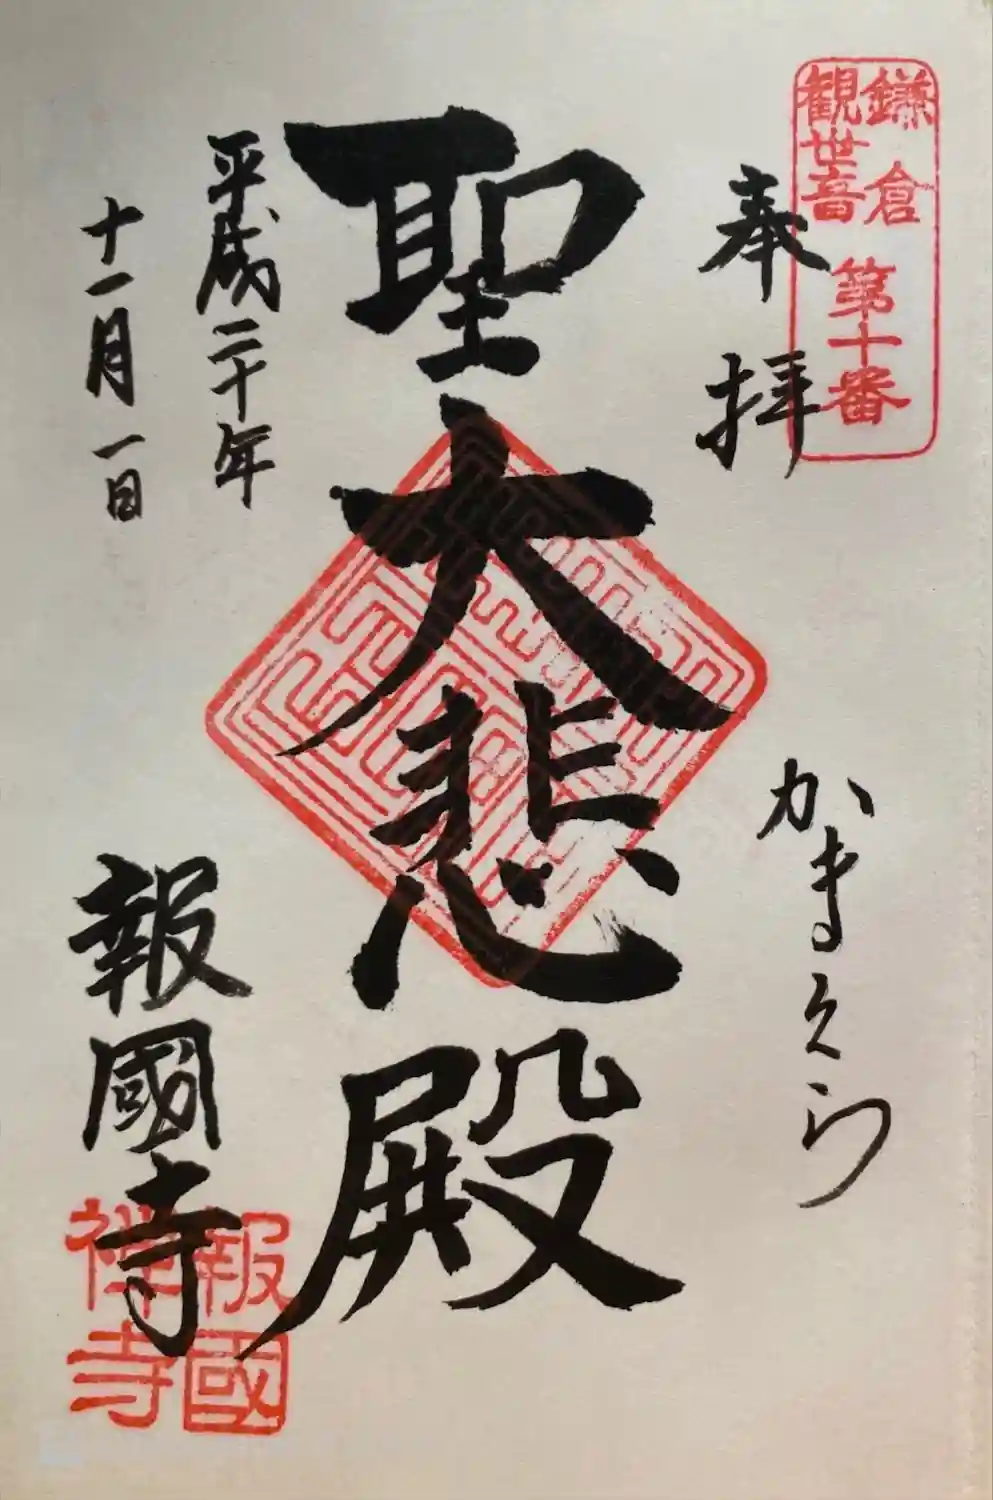 鎌倉
観世音
第十番
奉拝
かまくら
聖大悲殿
平成二十年
十一月一日
報國寺
報國
禅寺